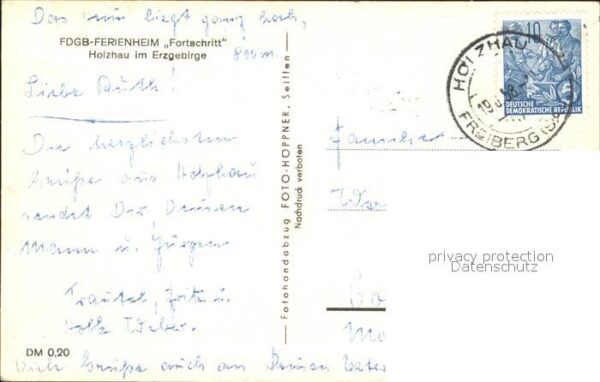 Das liegt ganz hoch,
FDGB-FERIENHEIM „Fortschritt"
Holzhau im Erzgebirge
890 m.
Liebe Ruth!
Die herzlichsten
Grüße aus Holzhau
sendet Dir Deinem
Mann u. Jürgen
Trautel, Fritz u.
Volk Weber.
Viele Grüße auch an Deinen Vater
DM 0,20
Fotohandabzug FOTO-HÖPPNER, Seiffen
Nachdruck verboten
HOLZHAU
FREIBERG (SA
10
DEUTSCHE
DEMOKRATISCHE REPUBLIK
Familie
privacy protection
Datenschutz